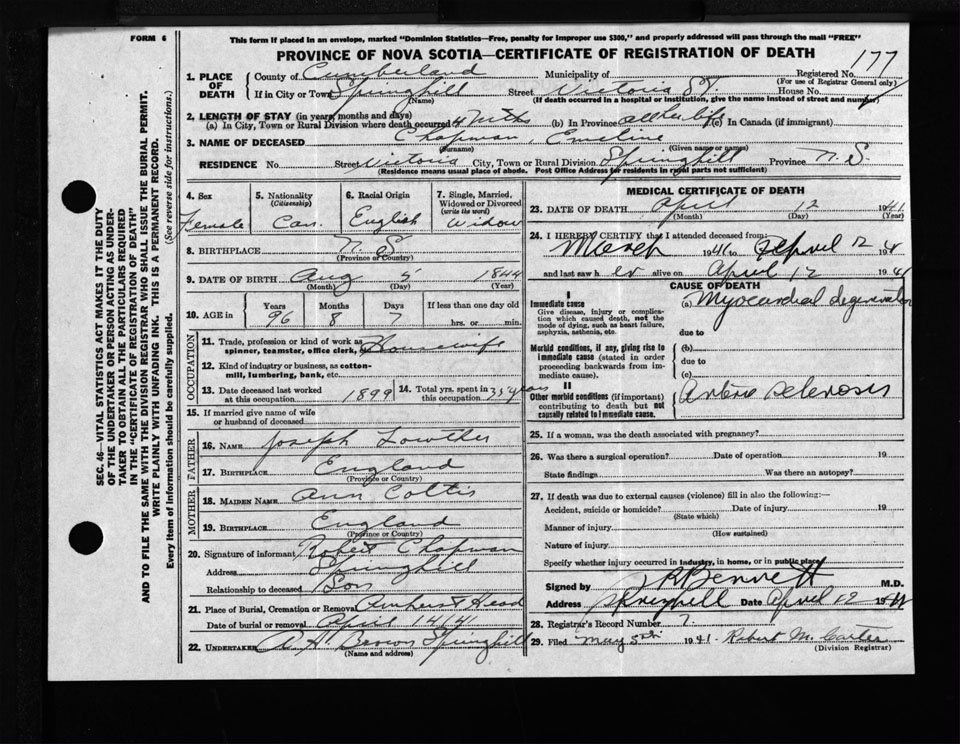 FORM 6
This form if placed in an envelope, marked "Dominion Statistics—Free, penalty for improper use $300," and properly addressed will pass through the mail "FREE"
PROVINCE OF NOVA SCOTIA—CERTIFICATE OF REGISTRATION OF DEATH
177
SEC. 46—VITAL STATISTICS ACT MAKES IT THE DUTY
OF THE UNDERTAKER OR PERSON ACTING AS UNDER-
TAKER TO OBTAIN ALL THE PARTICULARS REQUIRED
IN THE "CERTIFICATE OF REGISTRATION OF DEATH"
AND TO FILE THE SAME WITH THE DIVISION REGISTRAR WHO SHALL ISSUE THE BURIAL PERMIT.
WRITE PLAINLY WITH UNFADING INK. THIS IS A PERMANENT RECORD.
Every item of Information should be carefully supplied. (See reverse side for instructions.)
1. PLACE OF DEATH County of Cumberland Municipality of Registered No.
(For use of Registrar General only)
If in City or Town Springhill Street Victoria St. House No.
(Name) (If death occurred in a hospital or institution, give the name instead of street and number)
2. LENGTH OF STAY (in years, months and days)
(a) In City, Town or Rural Division where death occurred 4 Mths (b) In Province all her life (c) In Canada (if immigrant)
3. NAME OF DECEASED Chapman, Emeline
(Surname) (Given name or names)
RESIDENCE No Street Victoria City, Town or Rural Division Springhill Province N.S.
(Residence means usual place of abode. Post Office Address for residents in rural parts not sufficient)
4. Sex Female
5. Nationality (Citizenship) Can.
6. Racial Origin English
7. Single, Married, Widowed or Divorced (write the word) Widow
8. BIRTHPLACE N.S.
(Province or Country)
9. DATE OF BIRTH Aug 5 1844
(Month) (Day) (Year)
10. AGE in Years 96 Months 8 Days 7 If less than one day old
hrs. or min.
OCCUPATION
11. Trade, profession or kind of work as spinner, teamster, office clerk, etc. Housewife
12. Kind of industry or business, as cotton-mill, lumbering, bank, etc.
13. Date deceased last worked at this occupation 1899
14. Total yrs. spent in this occupation 35 years
15. If married give name of wife or husband of deceased
FATHER
16. NAME Joseph Lowther
17. BIRTHPLACE England
(Province or Country)
MOTHER
18. MAIDEN NAME Ann Coltis
19. BIRTHPLACE England
(Province or Country)
20. Signature of informant Robert Chapman
Address Springhill
Relationship to deceased Son
21. Place of Burial, Cremation or Removal Amherst Head
Date of burial or removal April 14/41
22. UNDERTAKER A.H. Brown Springhill
(Name and address)
MEDICAL CERTIFICATE OF DEATH
23. DATE OF DEATH April 12 1941
(Month) (Day) (Year)
24. I HEREBY CERTIFY that I attended deceased from:
March 1941 to April 12 1941
and last saw her alive on April 12 1941
CAUSE OF DEATH
I
Immediate cause (a) Myocardial degeneration
Give disease, injury or complication which caused death, not the mode of dying, such as heart failure, asphyxia, asthenia, etc.
due to
Morbid conditions, if any, giving rise to immediate cause (stated in order proceeding backwards from immediate cause).
(b)
due to
(c)
II
Other morbid conditions (if important) contributing to death but not causally related to immediate cause.
Arterio Sclerosis
25. If a woman, was the death associated with pregnancy?
26. Was there a surgical operation? Date of operation 19
State findings Was there an autopsy?
27. If death was due to external causes (violence) fill in also the following:—
Accident, suicide or homicide? Date of injury 19
(State which)
Manner of injury
(How sustained)
Nature of injury
Specify whether injury occurred in industry, in home, or in public place
Signed by Bennett M.D.
Address Springhill Date April 12 1941
28. Registrar's Record Number 7
29. Filed May 5th 1941 Robert M. Carter
(Division Registrar)